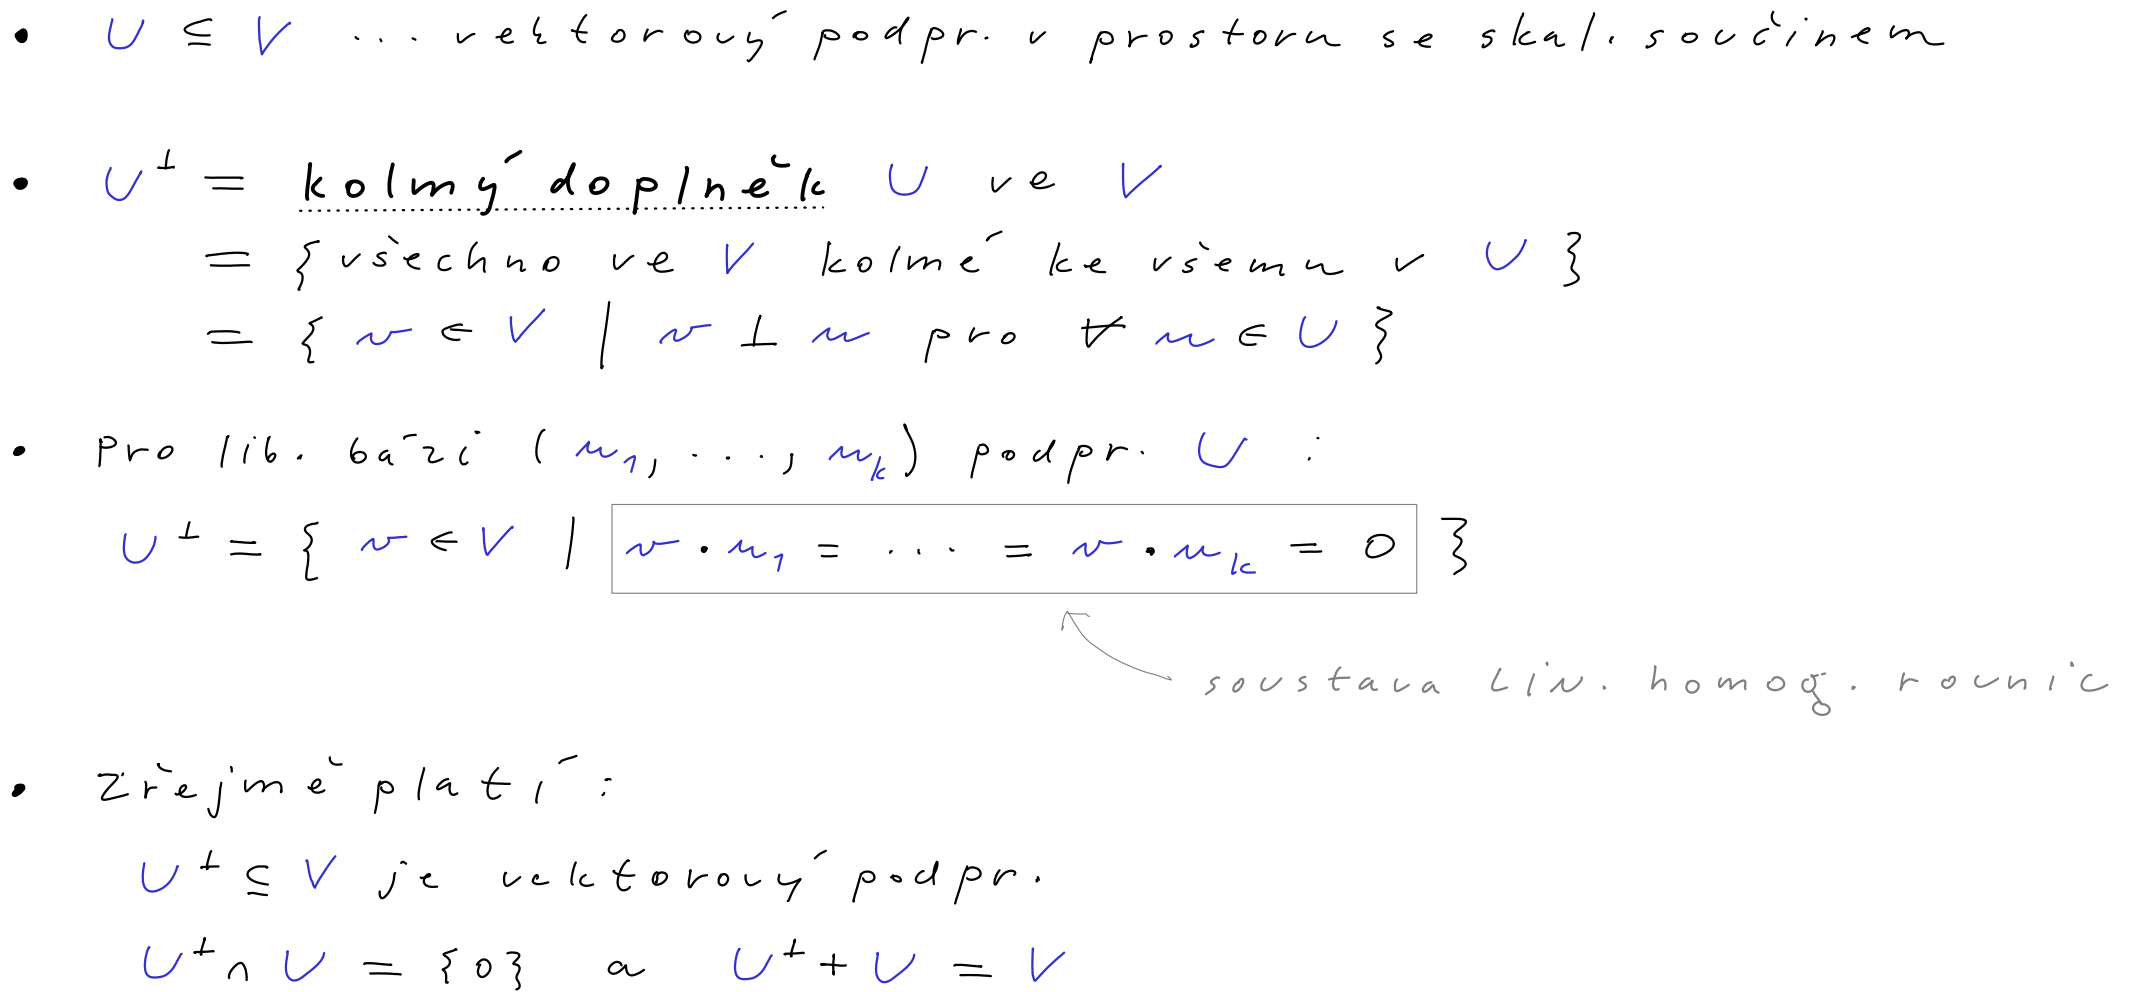 • U ⊆ V ... vektorový podpr. v prostoru se skal. součinem
• U⊥ = kolmý doplněk U ve V
= { všechno ve V kolmé ke všemu v U }
= { v ∈ V | v ⊥ u pro ∀ u ∈ U }
• Pro lib. bázi (u₁, ..., uₖ) podpr. U :
U⊥ = { v ∈ V | v · u₁ = ... = v · uₖ = 0 }
soustava lin. homog. rovnic
• Zřejmě platí :
U⊥ ⊆ V je vektorový podpr.
U⊥ ∩ U = {0} a U⊥ + U = V